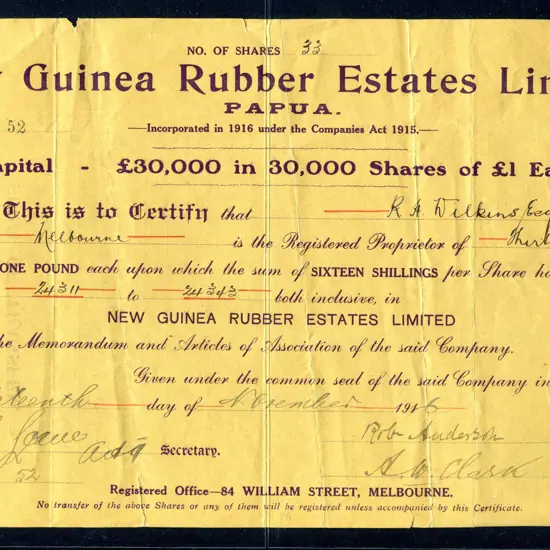 NO. OF SHARES 33
Guinea Rubber Estates Lim
PAPUA.
52
—Incorporated in 1916 under the Companies Act 1915.—
apital - £30,000 in 30,000 Shares of £1 Ea
This is to Certify that R A Wilkins Esq
Melbourne is the Registered Proprietor of Thirt
ONE POUND each upon which the sum of SIXTEEN SHILLINGS per Share ha
24311 to 24343 both inclusive, in
NEW GUINEA RUBBER ESTATES LIMITED
he Memorandum and Articles of Association of the said Company.
Given under the common seal of the said Company in
teenth day of November 1916
Secretary.
Rob Anderson
A. W. Clark
52
Registered Office—84 WILLIAM STREET, MELBOURNE.
No transfer of the above Shares or any of them will be registered unless accompanied by this Certificate.